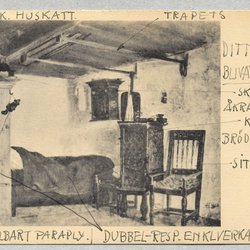 K. HUSKATT.
TRAPETS
DITT
BLIVA
SK
ÅKRA
K
BRÖD
SIT
LBART PARAPLY.
DUBBEL-RESP. ENKLVERKA